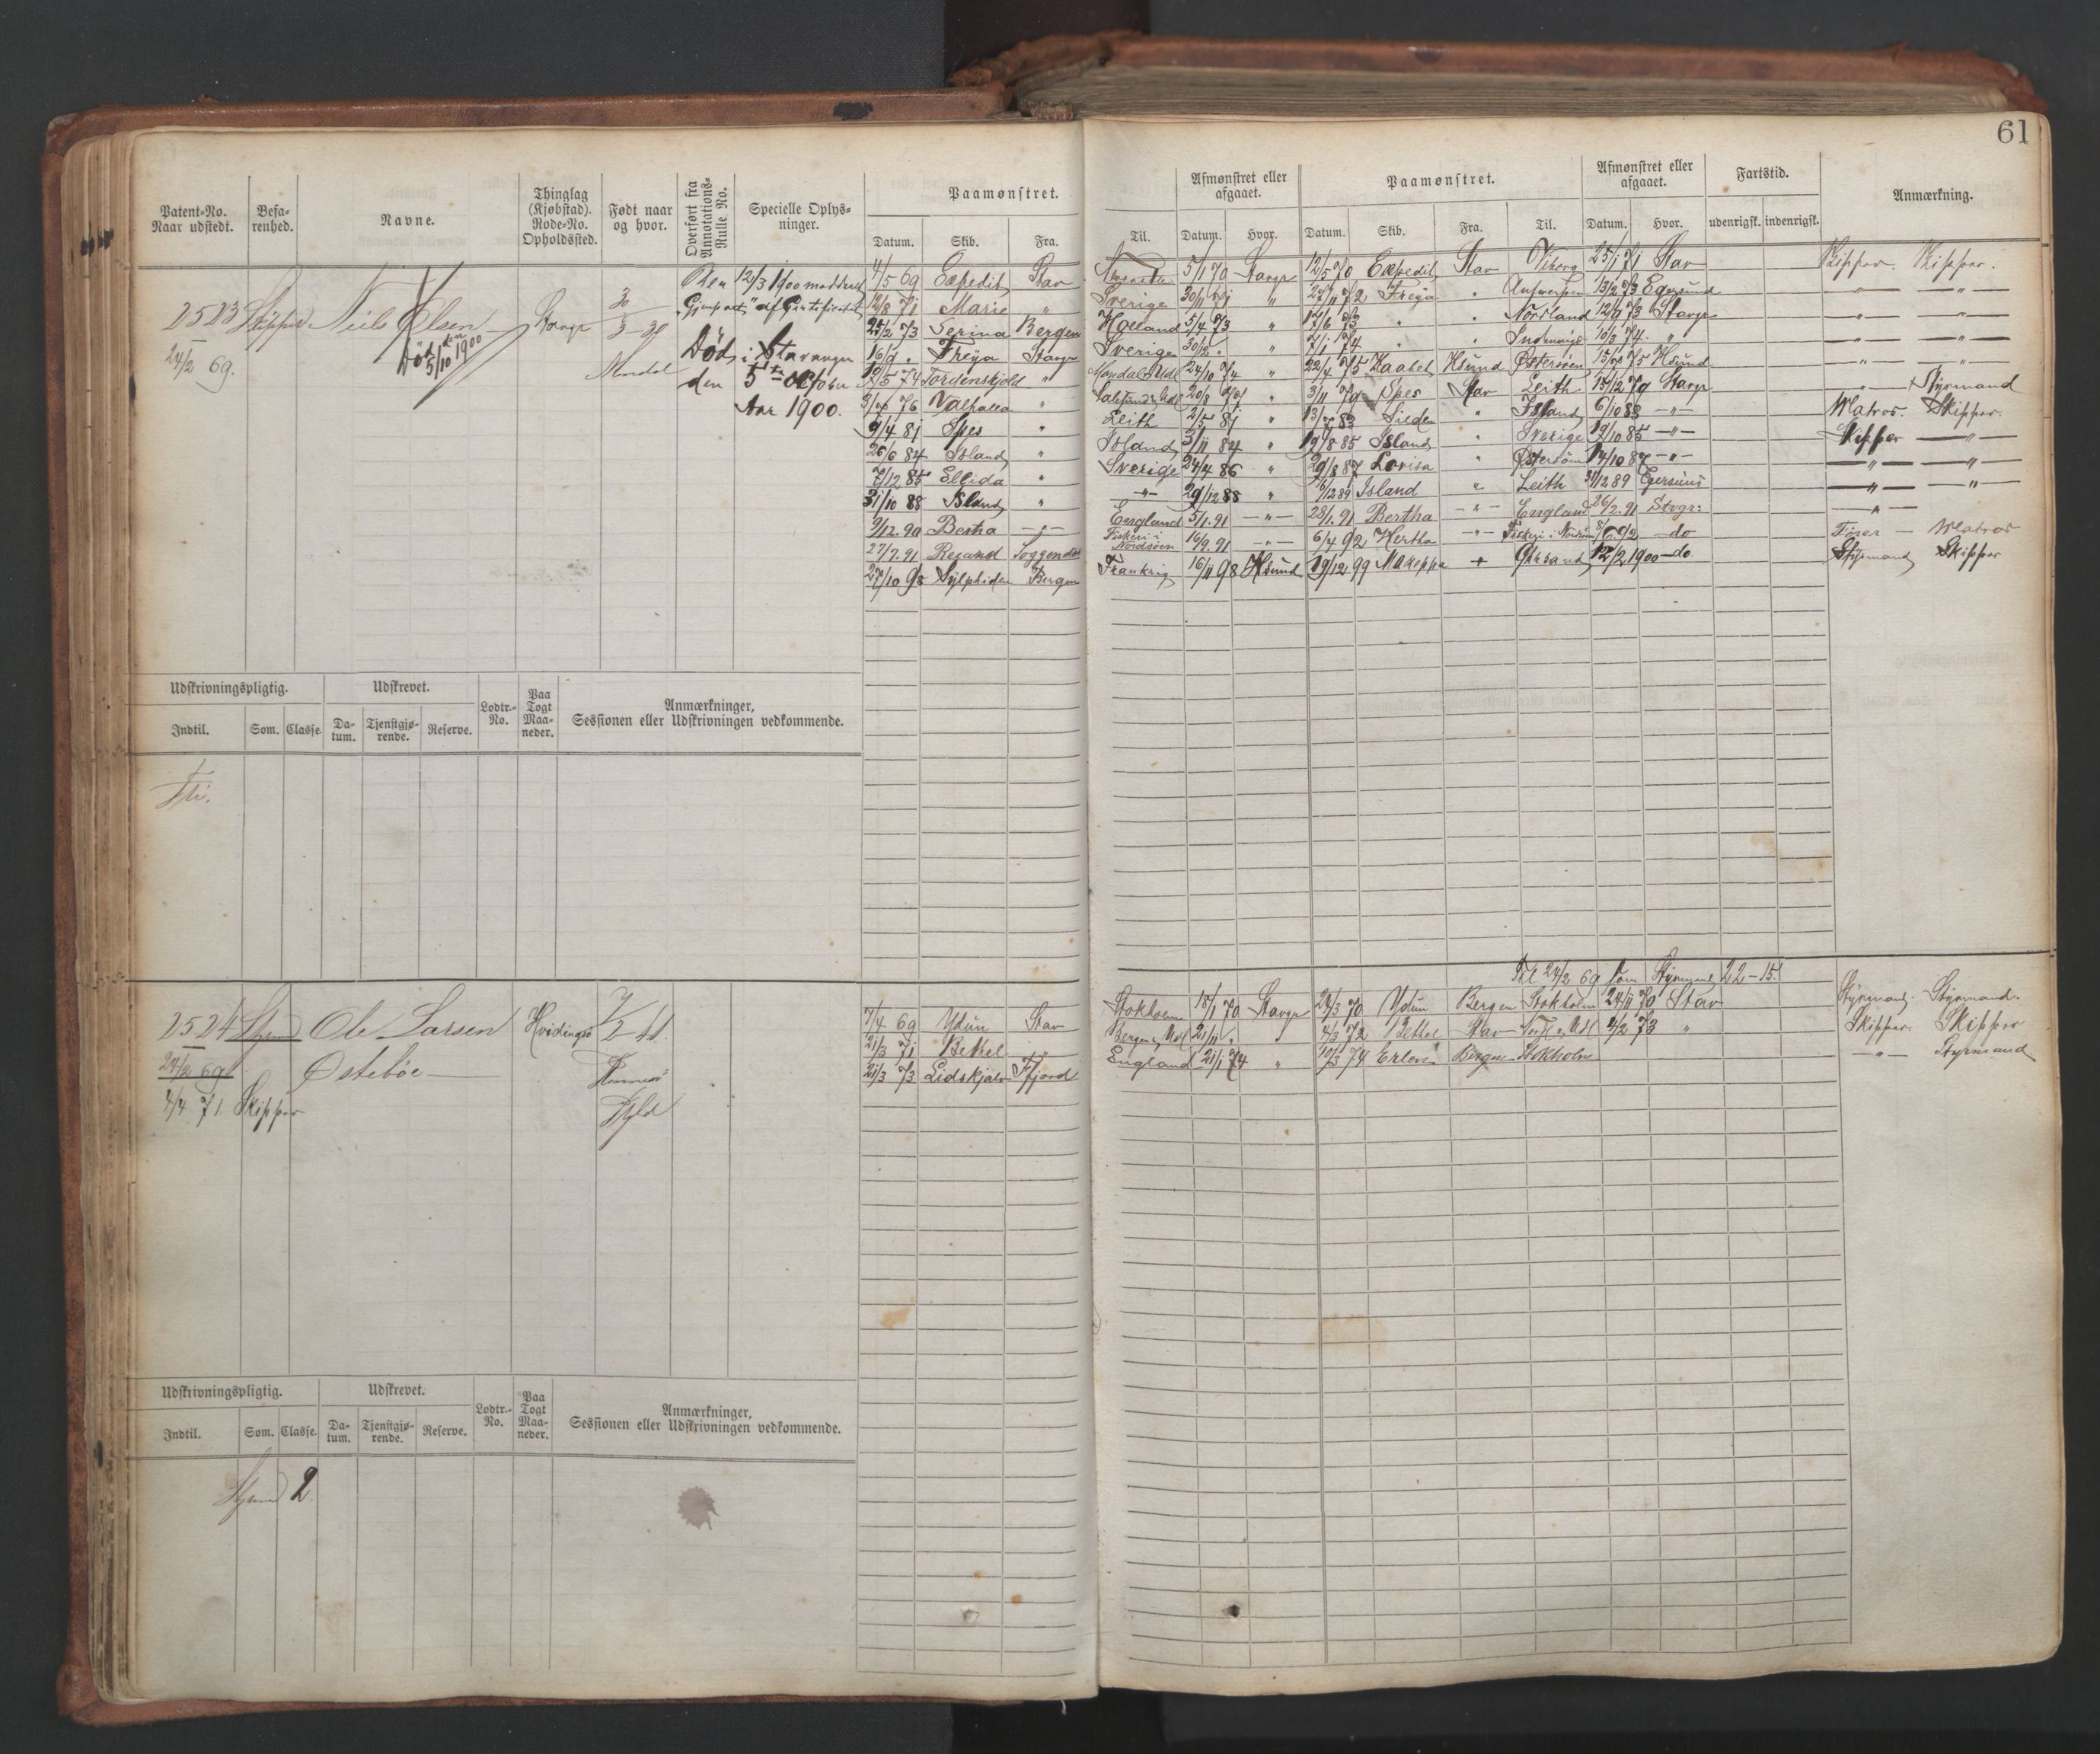 61
Patent-No. Naar udstedt.
Befarenhed.
Navne.
Thinglag (Kjøbstad). Rode-No. Opholdssted.
Født naar og hvor.
Overført fra Annotations-Rulle No.
Specielle Oplysninger.
Paamønstret.
Datum. Skib. Fra. Til.
Afmønstret eller afgaaet.
Datum. Hvor.
Paamønstret.
Datum. Skib. Fra. Til.
Afmønstret eller afgaaet.
Datum. Hvor.
Fartstid.
udenrigsk. indenrigsk.
Anmærkning.
2523 Skipper Niels Olsen Stavgr 30/3 30
24/2 69.
Død den 5/10 1900
Mandal
Den 12/3 1900
Død i Stavanger
den 5te October
Aar 1900.
4/5 69 Expedit Stav 5/1 70 Stavgr 12/5 70 Expedit Stav Viborg 25/1 71 Stav Skipper. Skipper.
12/8 71 Marie " Sverige 30/11 71 " 27/11 72 Freya " Antwerpen 13/2 73 Egersund —"— —"—
25/2 73 Serina Bergen Holland 5/4 73 " 17/6 73 " " Nordland 12/9 73 Stavgr —"— —"—
16/9 " Freya Stavgr Sverige 30/12 " " 7/1 74 " " 10/3 74 " —"— —"—
5 74 Tordenskjold " 24/10 74 " 22/4 75 Haabet Hsund Østersøen 75 Hsund —"— —"—
76 Valhalla " 20/8 " 3/11 79 Spes Stav Leith 15/12 79 Stavgr " Styrmand
9/4 81 Spes " Leith 2/5 81 " 83 " Island 6/10 83 —"— Matros. Skipper.
26/6 84 Island " Island 3/11 84 " 19/8 85 Island " Sverige 19/10 85 —"— Skipper —"—
7/12 85 Ellida " Sverige 24/4 86 " 29/8 87 Lovisa " Østersøen 14/10 87 —"— —"— —"—
31/10 88 Island " —"— 29/12 88 " 89 Island " Leith 31/12 89 Egersund —"— —"—
9/12. 90 Bertha —"— England 5/1. 91 —"— 28/1. 91 Bertha —"— England 26/2. 91 Stvgr: —"—
27/7. 91 Soggendal Fiskeri i Nordsøen 16/9. 91 —"— 6/4 92 Hertha —"— Fiskeri i Nordsøen 92 do — Matros
27/10 98 Sylphiden Bergen Frankrig 16/11 98 Hsund 19/12 99 12/2 1900 do Styrmand Skipper
Udskrivningspligtig.
Indtil. Som. Classe.
Udskrevet.
Datum. Tjenstgjørende. Reserve.
Lodtr.-No.
Paa Togt Maaneder.
Anmærkninger, Sessionen eller Udskrivningen vedkommende.
Fri.
24/2 69 som Styrmand 22-15.
2524 Styrmd Ole Larsen Hvidingsø 7/2 41
24/2 69 Østebøe
4/4 71. Skipper
7/4 69 Ydun Stav Stokholm 18/1 70 Stavgr 24/3 70 Ydun Bergen Stokholm 24/11 70 Stav Styrmand. Styrmand.
21/3 71 Bethel " 21/11 " " 4/3 72 Bethel Stav 4/2 73 " Skipper. Skipper
21/3 73 Lidskjalv England 21/1 74 " 10/3 74 Bergen Stokholm —"— Styrmand
Udskrivningspligtig.
Indtil. Som. Classe.
Udskrevet.
Datum. Tjenstgjørende. Reserve.
Lodtr.-No.
Paa Togt Maaneder.
Anmærkninger, Sessionen eller Udskrivningen vedkommende.
Styrmd 2.